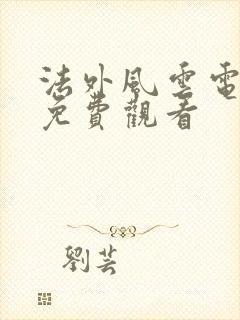 法外風雲電
免費觀看
劉芸